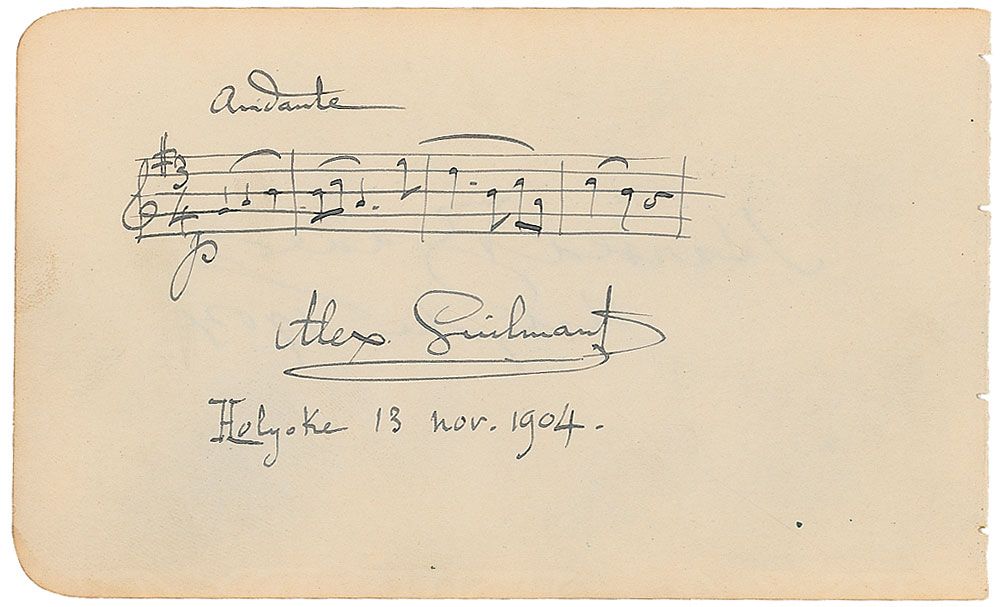 Andante
3
4
Alex. Guilmant
Holyoke 13 nov. 1904.